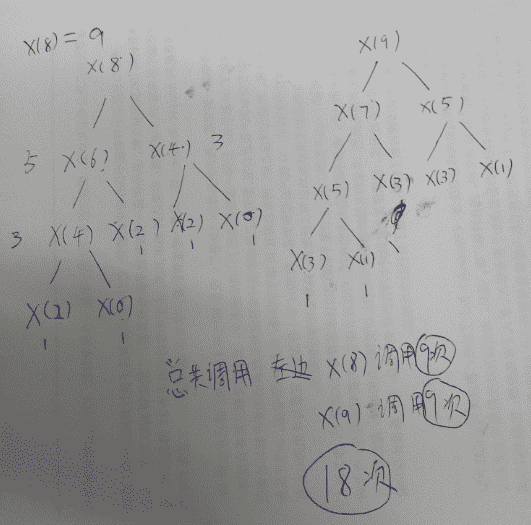 X(8) = 9
X(8)
5 X(6) X(4) 3
3 X(4) X(2) X(2) X(0)
1 1 1
X(2) X(0)
1 1
X(9)
X(7) X(5)
X(5) X(3) X(3) X(1)
X(3) X(1)
1 1
总共调用 左边 X(8) 调用9次
X(9) 调用9次
18次